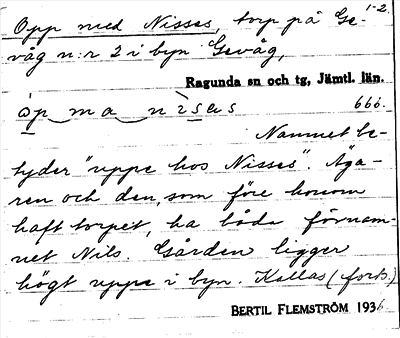 1-2.
Opp med Nisses, torp på Ge-
våg n:r 2 i byn Gevåg,
Ragunda sn och tg, Jämtl. län.
òp ma nisəs 666.
Namnet be-
tyder "uppe hos Nisses". Äga-
ren och den, som före honom
haft torpet, ha båda förnam-
net Nils. Gården ligger
högt uppe i byn. Kallas (forts.)
BERTIL FLEMSTRÖM 1936